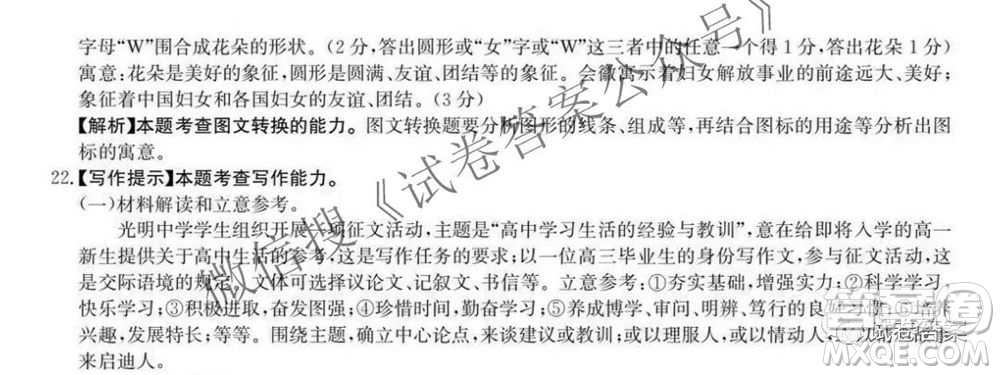 字母“W”围合成花朵的形状。(2分,答出圆形或“女”字或“W”这三者中的任意一个得1分,答出花朵1分)
寓意:花朵是美好的象征,圆形是圆满、友谊、团结等的象征。会徽寓示着妇女解放事业的前途远大、美好;
象征着中国妇女和各国妇女的友谊、团结。(3分)
【解析】本题考查图文转换的能力。图文转换题要分析图形的线条、组成等,再结合图标的用途等分析出图
标的寓意。
22.【写作提示】本题考查写作能力。
(一)材料解读和立意参考。
光明中学学生组织开展一项征文活动,主题是“高中学习生活的经验与教训”,意在给即将入学的高一
新生提供关于高中生活的参考,这是写作的目的;以一位高三毕业生的身份写作文,参与征文活动,这
是交际语境的规定。文体可选择议论文、记叙文、书信等。立意参考:①夯实基础,增强实力;②科学学习,
快乐学习;③积极进取,奋发图强;④珍惜时间,勤奋学习;⑤养成博学、审问、明辨、笃行的良
兴趣,发展特长;等等。围绕主题,确立中心论点,来谈建议或教训;或以理服人,或以情动人,
来启迪人。
微信搜《试卷答案公众号》
答案圈
MXQE.COM